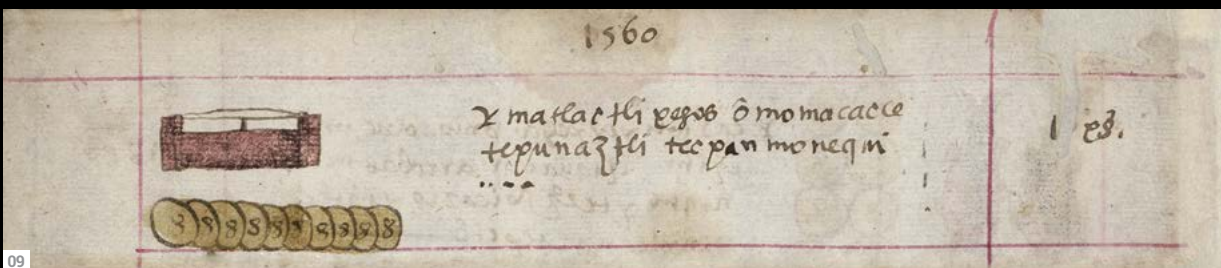 1560
Y matlactli pesos õ momacac ce
tepunaztli tecpan monequi
1 ps.
8 8 8 8 8 8 8 8 8 8
09